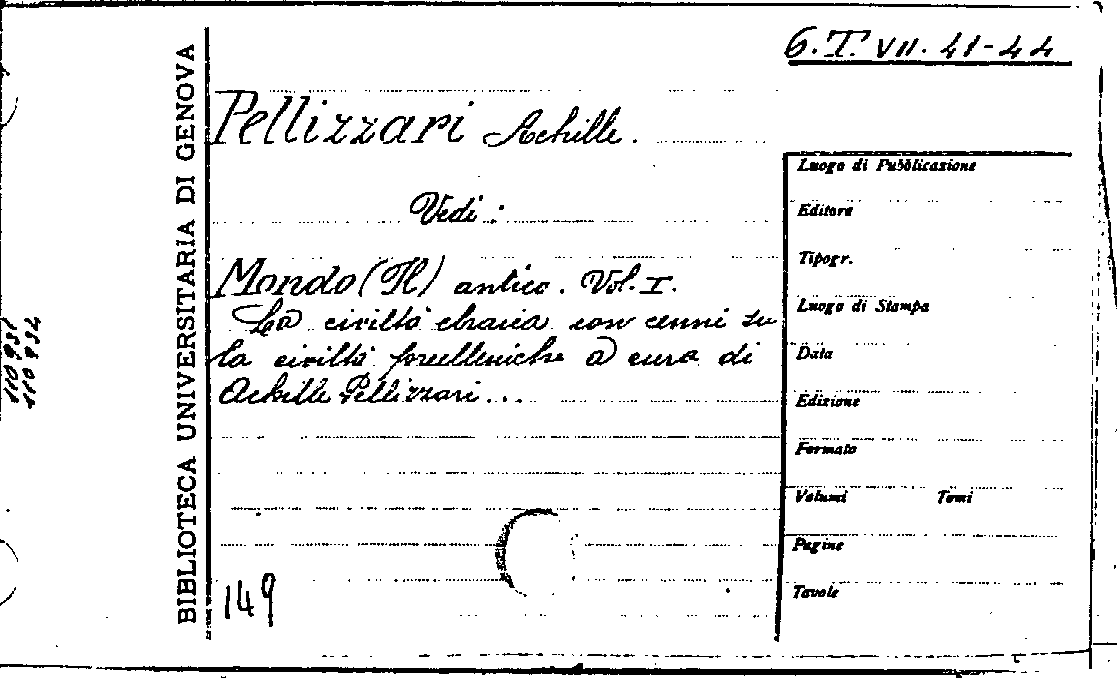 6.T.VII.41-44
BIBLIOTECA UNIVERSITARIA DI GENOVA
110931
110932
Pellizzari Achille.
Vedi:
Mondo (Il) antico. Vol. I.
La civiltà ebraica con cenni su
la civiltà preelleniche a cura di
Achille Pellizzari...
149
Luogo di Pubblicazione
Editore
Tipogr.
Luogo di Stampa
Data
Edizione
Formato
Volumi Tomi
Pagine
Tavole